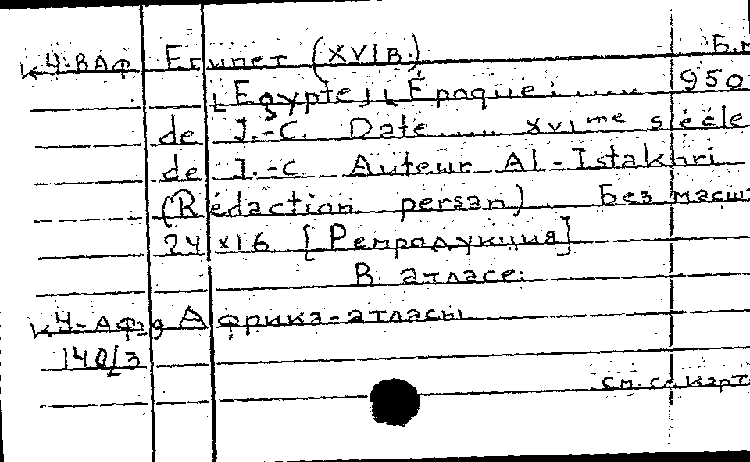 К 4-ВАф Египет (XVI в.) Б.г
[Egypte] [Époque: ..... 950
de J.-C. Date ..... XVIme siécle
de J.-C Auteur Al-Istakhri
(Rédaction persan) Без масш
24x16 [Репродукция]
В атласе:
К 4-Аф Африка-атласы
140/3
см. с. карт